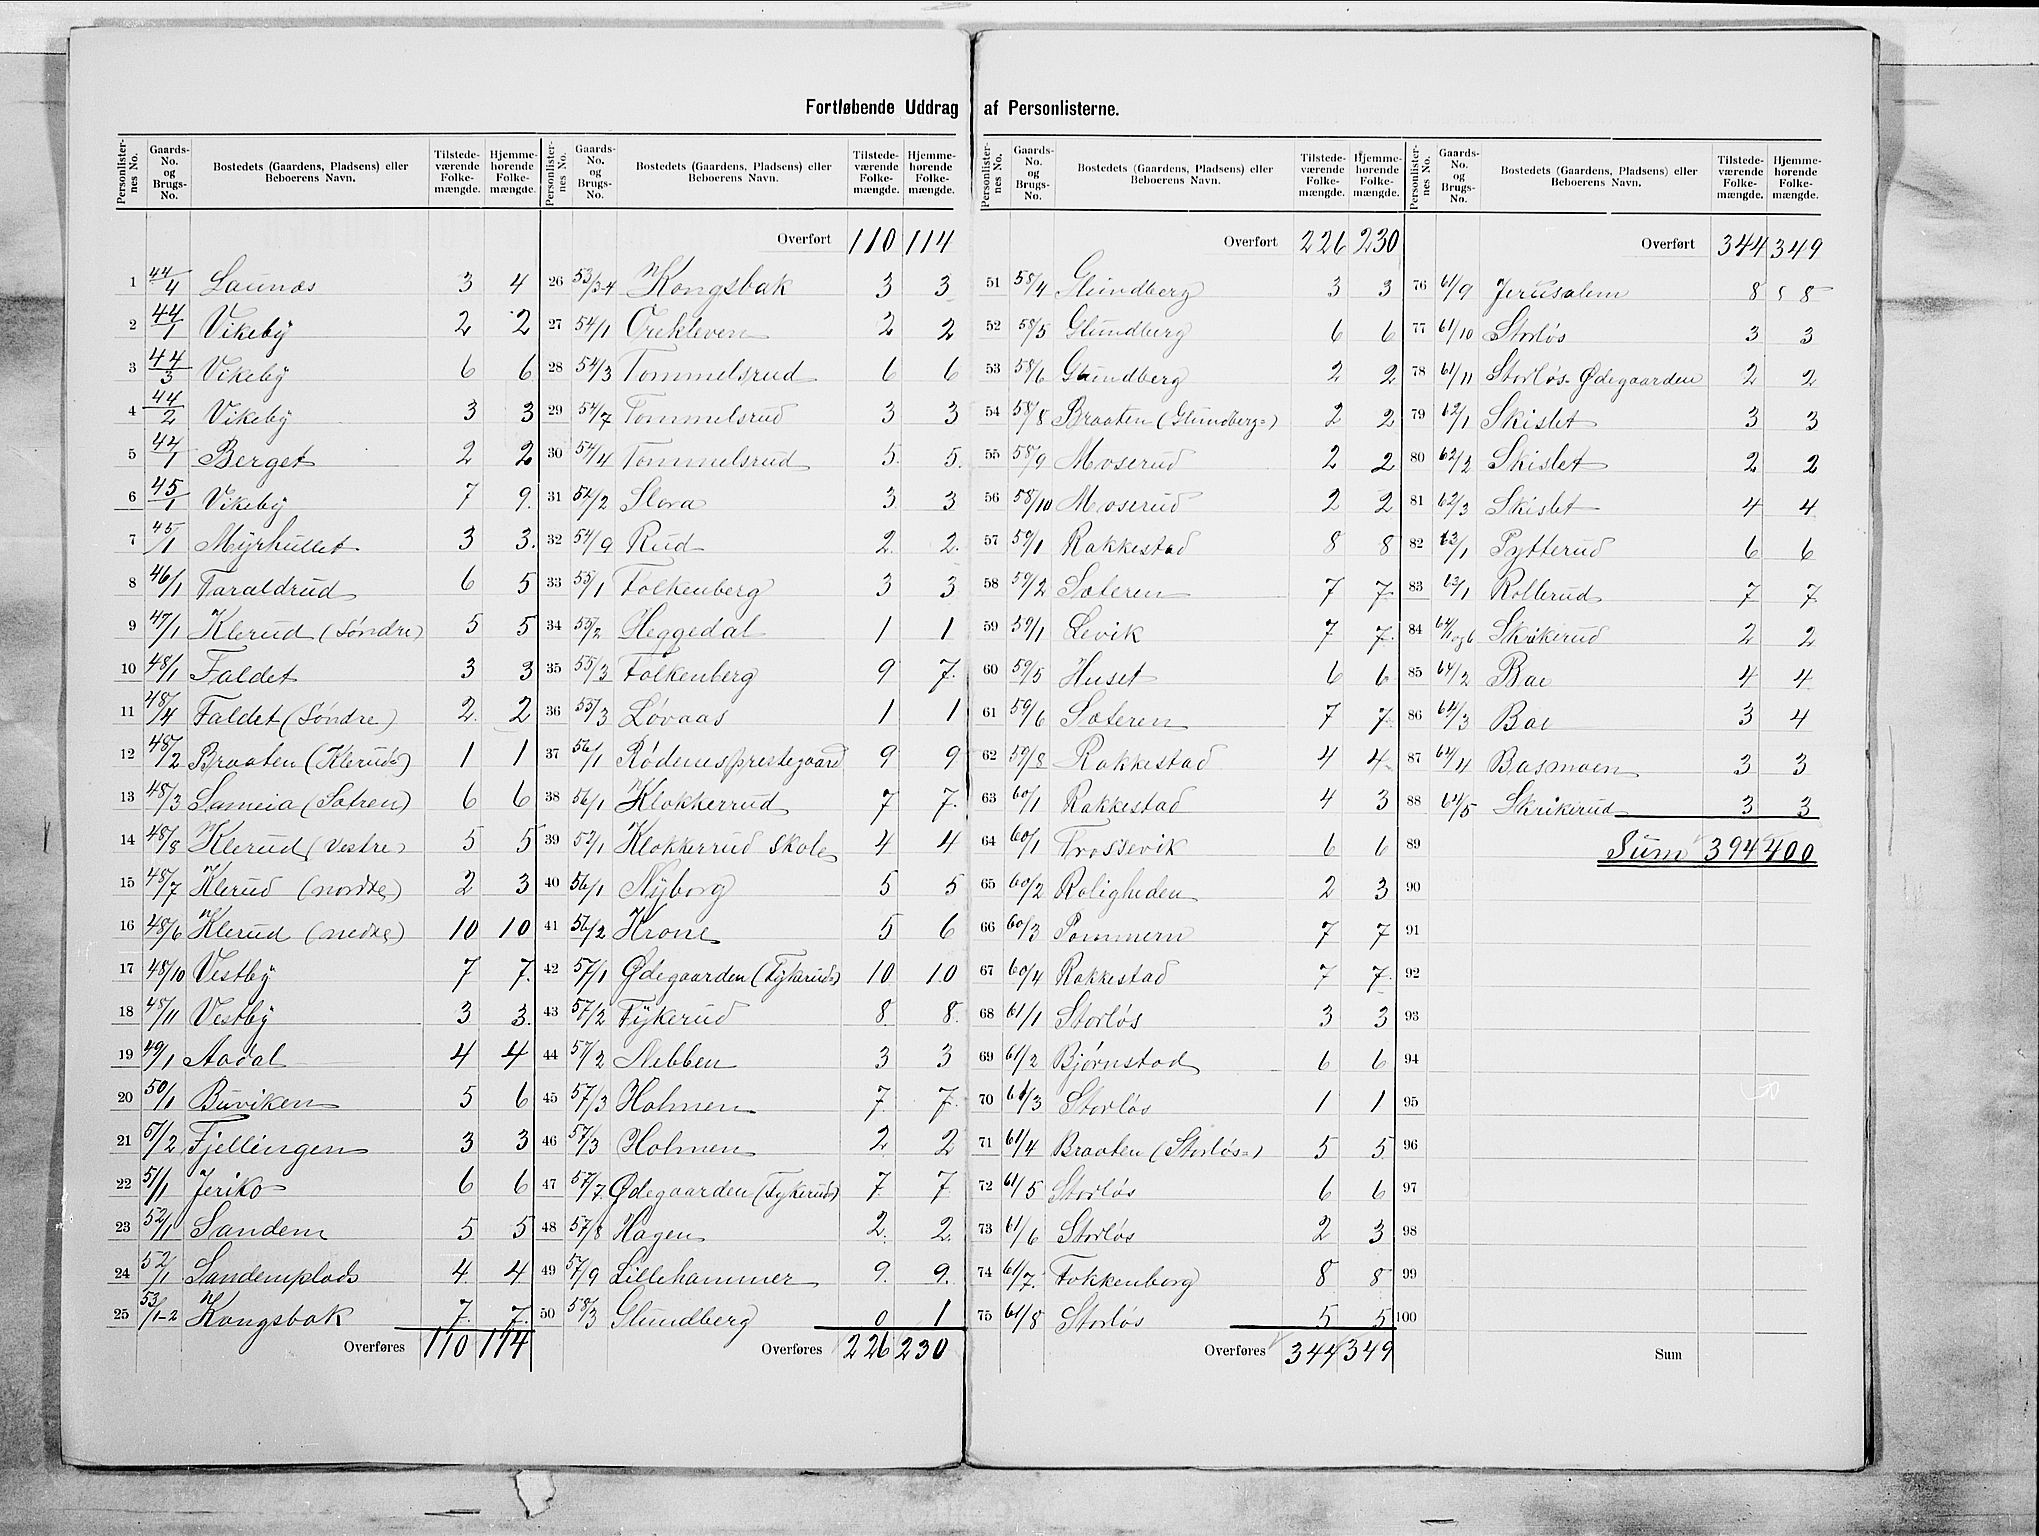 Fortløbende Uddrag af Personlisterne.
Personlisternes No. Gaards-No. og Brugs-No. Bostedets (Gaardens, Pladsens) eller Beboerens Navn. Tilstedeværende Folkemængde. Hjemmehørende Folkemængde.
1 44/4 Launæs 3 4
2 44/1 Vikeby 2 2
3 44/3 Vikeby 6 6
4 44/2 Vikeby 3 3
5 44/1 Berget 2 2
6 45/1 Vikeby 7 9
7 45/1 Myrhullet 3 3
8 46/1 Taraldrud 6 5
9 47/1 Klerud (Søndre) 5 5
10 48/1 Faldet 3 3
11 48/4 Faldet (Søndre) 2 2
12 48/2 Braaten (Klerud=) 1 1
13 48/3 Sameia (Sætren) 6 6
14 48/8 Klerud (Vestre) 5 5
15 48/7 Klerud (nordre) 2 3
16 48/6 Klerud (nedre) 10 10
17 48/10 Vestby 7 7
18 48/11 Vestby 3 3
19 49/1 Aadal 4 4
20 50/1 Buviken 5 6
21 51/2 Fjellingen 3 3
22 51/1 Jeriko 6 6
23 52/1 Sandem 5 5
24 52/1 Sandemplads 4 4
25 53/1-2 Kongsbak 7 7
Overføres 110 114
Personlisternes No. Gaards-No. og Brugs-No. Bostedets (Gaardens, Pladsens) eller Beboerens Navn. Tilstedeværende Folkemængde. Hjemmehørende Folkemængde.
Overført 110 114
26 53/3-4 Kongsbak 3 3
27 54/1 Orekleven 2 2
28 54/3 Tommelsrud 6 6
29 54/7 Tommelsrud 3 3
30 54/4 Tommelsrud 5 5
31 54/2 Slora 3 3
32 54/9 Rud 2 2
33 55/1 Folkenberg 3 3
34 55/2 Heggedal 1 1
35 55/3 Folkenberg 9 7
36 55/3 Løvaas 1 1
37 56/1 Rødenesprestegaard 9 9
38 56/1 Klokkerrud 7 7
39 52/1 Klokkerrud skole 4 4
40 56/1 Nyborg 5 5
41 56/2 Krone 5 6
42 57/1 Ødegaarden (Tykerud=) 10 10
43 57/2 Tykerud 8 8
44 57/2 Nebben 3 3
45 57/3 Holmen 7 7
46 57/3 Holmen 2 2
47 57/7 Ødegaarden (Tykerud=) 7 7
48 57/8 Hagen 2 2
49 57/9 Lillehammer 9 9
50 58/3 Glundberg 0 1
Overføres 226 230
Personlisternes No. Gaards-No. og Brugs-No. Bostedets (Gaardens, Pladsens) eller Beboerens Navn. Tilstedeværende Folkemængde. Hjemmehørende Folkemængde.
Overført 226 230
51 58/4 Glundberg 3 3
52 58/5 Glundberg 6 6
53 58/6 Glundberg 2 2
54 58/8 Braaten (Glundberg=) 2 2
55 58/9 Moserud 2 2
56 58/10 Moserud 2 2
57 59/1 Rakkestad 8 8
58 59/2 Sæteren 7 7
59 59/1 Levik 7 7
60 59/5 Huset 6 6
61 59/6 Sæteren 7 7
62 59/8 Rakkestad 4 4
63 60/1 Rakkestad 4 3
64 60/1 Trossevik 6 6
65 60/2 Roligheden 2 3
66 60/3 Pommern 7 7
67 60/4 Rakkestad 7 7
68 61/1 Storløs 3 3
69 61/2 Bjørnstad 6 6
70 61/3 Storløs 1 1
71 61/4 Braaten (Storløs=) 5 5
72 61/5 Storløs 6 6
73 61/6 Storløs 2 3
74 61/7 Fokkenborg 8 8
75 61/8 Storløs 5 5
Overføres 344 349
Personlisternes No. Gaards-No. og Brugs-No. Bostedets (Gaardens, Pladsens) eller Beboerens Navn. Tilstedeværende Folkemængde. Hjemmehørende Folkemængde.
Overført 344 349
76 61/9 Jerusalem 8 8
77 61/10 Storløs 3 3
78 61/11 Storløs-Ødegaarden 2 2
79 62/1 Skislet 3 3
80 62/2 Skislet 2 2
81 62/3 Skislet 4 4
82 63/1 Pytterud 6 6
83 63/1 Rollerud 7 7
84 64/1 og 6 Skrikerud 2 2
85 64/2 Bae 4 4
86 64/3 Bae 3 4
87 64/4 Basmoen 3 3
88 64/5 Skrikerud 3 3
89 Sum 394 400
90
91
92
93
94
95
96
97
98
99
100
Sum